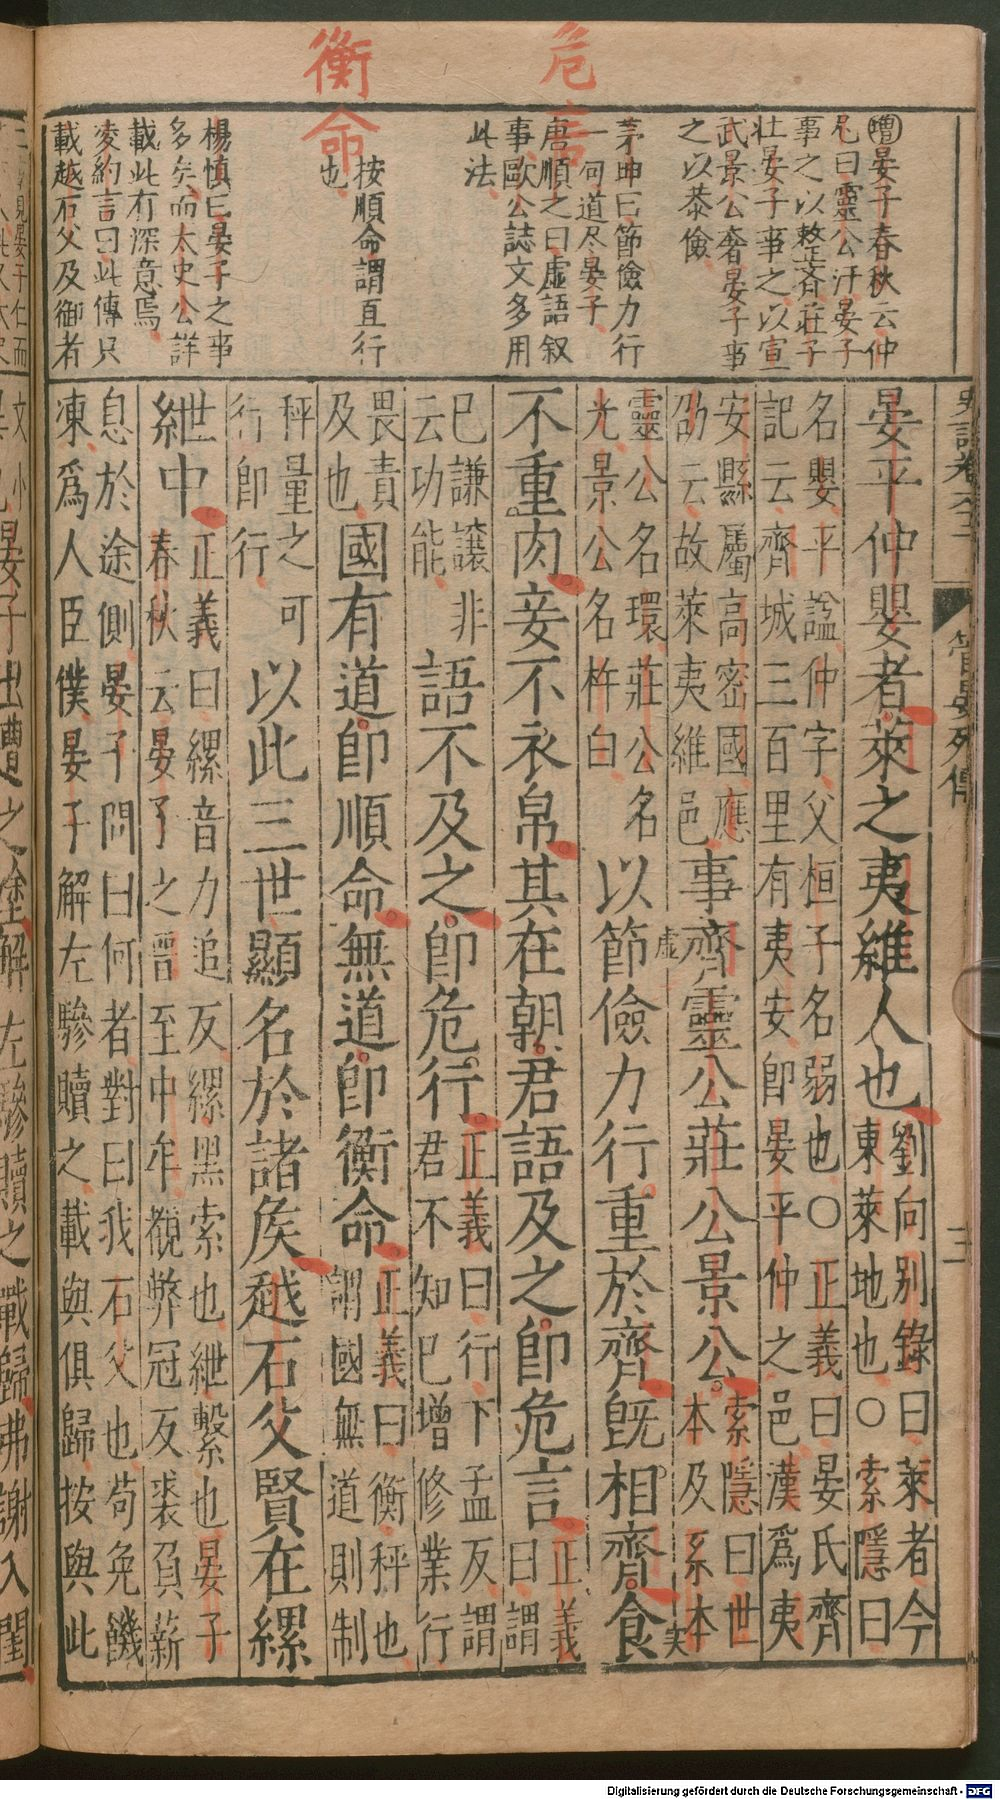 危言
衡命
㊞晏子春秋云仲
尼曰靈公汙晏子
事之以整齊莊子
壯晏子事之以宣
武景公奢晏子事
之以恭儉
茅坤曰節儉力行
一句道尽晏子
唐順之曰虛語叙
事歐公誌文多用
此法
按順命謂直行
也
楊慎曰晏子之事
多矣而太史公詳
載此有深意焉
凌約言曰此傳只
載越石父及御者
史記卷六十二
管晏列傳
三
晏平仲嬰者萊之夷維人也
劉向別錄曰萊者今
東萊地也○索隱曰
名嬰平謚仲字父桓子名弱也○正義曰晏氏齊
記云齊城三百里有夷安即晏平仲之邑漢爲夷
安縣屬高密國應
劭云故萊夷維邑
事齊靈公莊公景公
索隱曰世
本及系本
靈公名環莊公名
光景公名杵臼
以節儉力行重於齊既相齊食
虛
実
不重肉妾不衣帛其在朝君語及之即危言
正義
曰謂
已謙讓非
云功能
語不及之即危行
正義曰行下孟反謂
君不知已增修業行
畏責
及也
國有道即順命無道即衡命
正義曰衡秤也
謂國無道則制
秤量之可
行即行
以此三世顯名於諸侯越石父賢在縲
紲中
世正義曰縲音力追反縲黑索也紲繫也晏子
春秋云晏子之晋至中牟覩弊冠反裘負薪
息於途側晏子問曰何者對曰我石父也苟免饑
凍爲人臣僕晏子解左驂贖之載與俱歸按與此
晏子出遭之途解左驂贖之載歸弗謝入閨
Digitalisierung gefördert durch die Deutsche Forschungsgemeinschaft - DFG